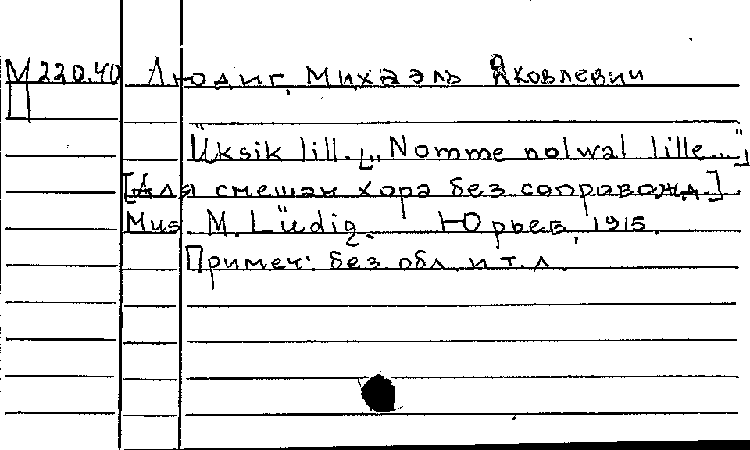 М 220.40 Людиг, Михаэль Яковлевич
П
Üksik lill. [„Nomme nolwal lille..."]
[Для смешан хора без сопровожд.]
Mus M. Lüdig. Юрьев, 1915.
Примеч: без обл. и т. л.